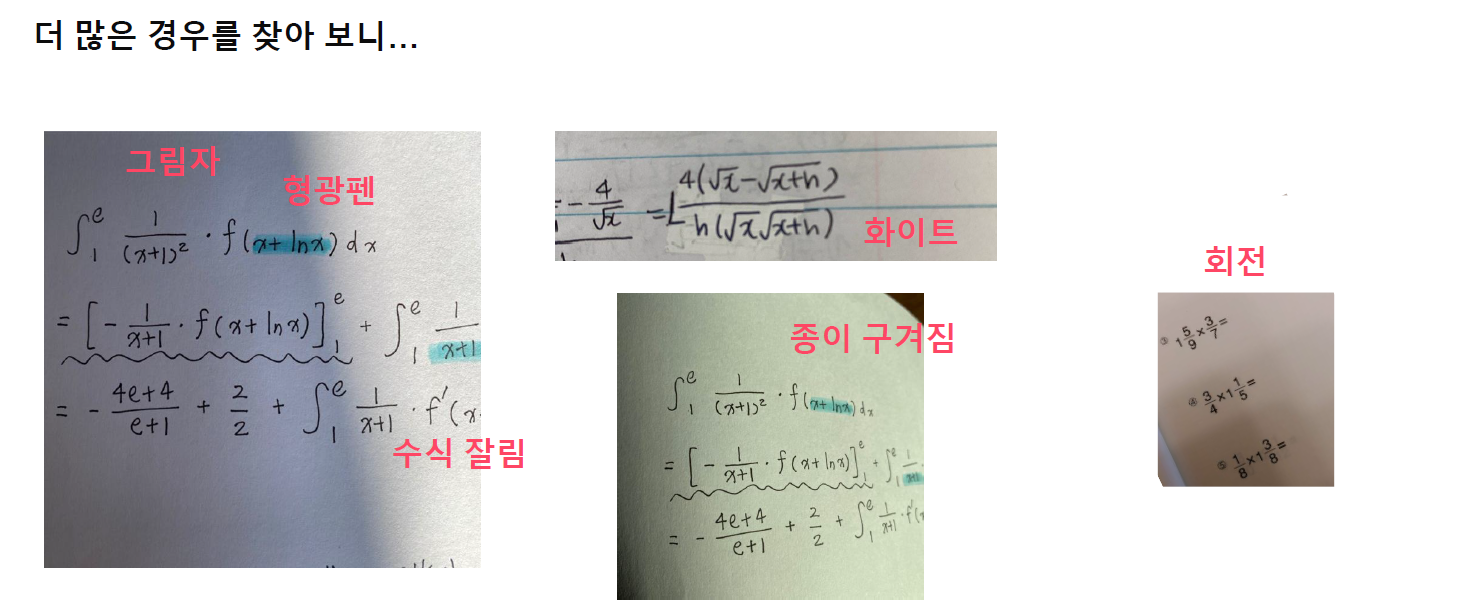 더 많은 경우를 찾아 보니...
그림자
형광펜
∫₁ᵉ 1/(x+1)² · f(x+lnx)dx
= [-1/(x+1) · f(x+lnx)]₁ᵉ + ∫₁ᵉ 1/(x+1)
= - (4e+4)/(e+1) + 2/2 + ∫₁ᵉ 1/(x+1) · f'(x
수식 잘림
- 4/√x = L 4(√x-√(x+h))/h(√x√(x+h))
화이트
종이 구겨짐
∫₁ᵉ 1/(x+1)² · f(x+lnx)dx
= [-1/(x+1) · f(x+lnx)]₁ᵉ + ∫₁ᵉ 1/(x+1)
= - (4e+4)/(e+1) + 2/2 + ∫₁ᵉ 1/(x+1) · f'(x
회전
③ 1 5/9 × 3/7 =
④ 3/4 × 1 1/5 =
⑤ 1/8 × 1 3/8 =